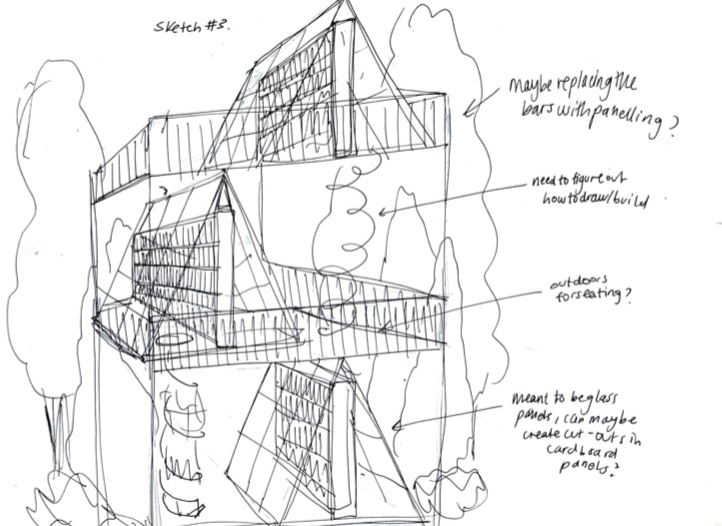 Sketch #3.
Maybe replacing the
bars with panelling?
need to figure out
how to draw/build
outdoors
for seating?
meant to be glass
panels, can maybe
create cut-outs in
cardboard
panels?